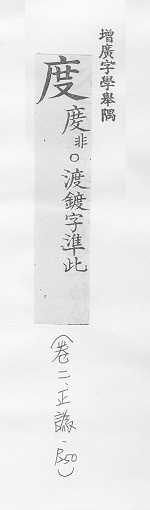 增廣字學舉隅
度 庹非○渡鍍字準此
(卷二、正譌、P.50)